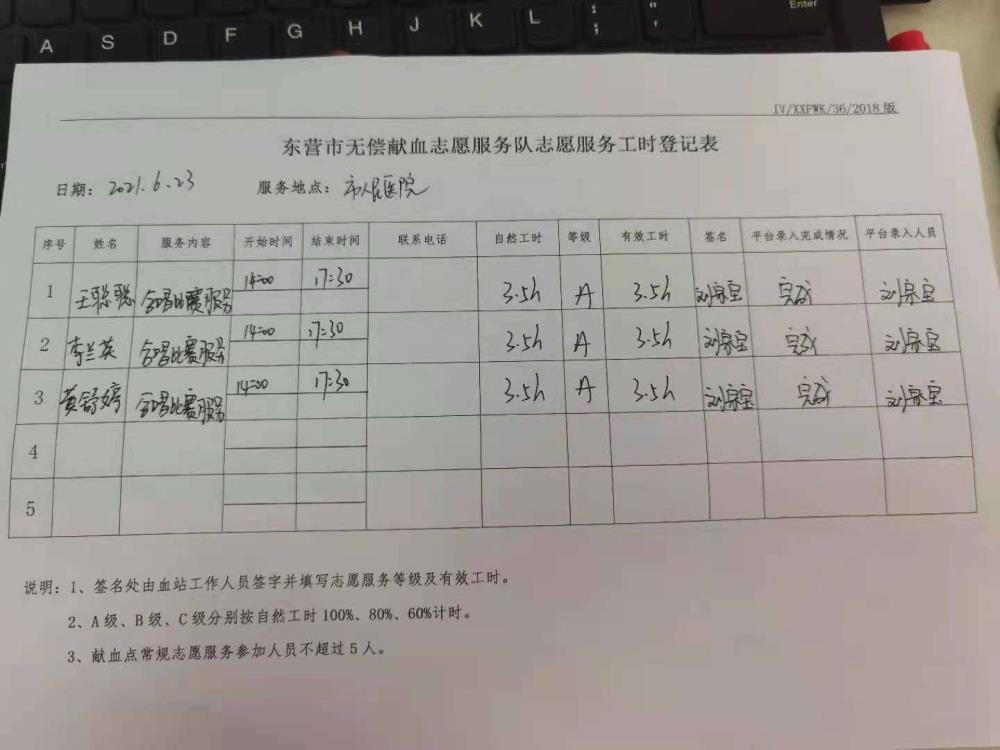 A S D F G H J K L : ; " ' Enter
IV/XXFWK/36/2018版
东营市无偿献血志愿服务队志愿服务工时登记表
日期：2021.6.23 服务地点：市人民医院
序号 姓名 服务内容 开始时间 结束时间 联系电话 自然工时 等级 有效工时 签名 平台录入完成情况 平台录入人员
1 王聪聪 合唱比赛服务 14:00 17:30 3.5h A 3.5h 刘宗宝 完成 刘宗宝
2 李兰英 合唱比赛服务 14:00 17:30 3.5h A 3.5h 刘宗宝 完成 刘宗宝
3 黄舒婷 合唱比赛服务 14:00 17:30 3.5h A 3.5h 刘宗宝 完成 刘宗宝
4
5
说明：1、签名处由血站工作人员签字并填写志愿服务等级及有效工时。
2、A级、B级、C级分别按自然工时100%、80%、60%计时。
3、献血点常规志愿服务参加人员不超过5人。